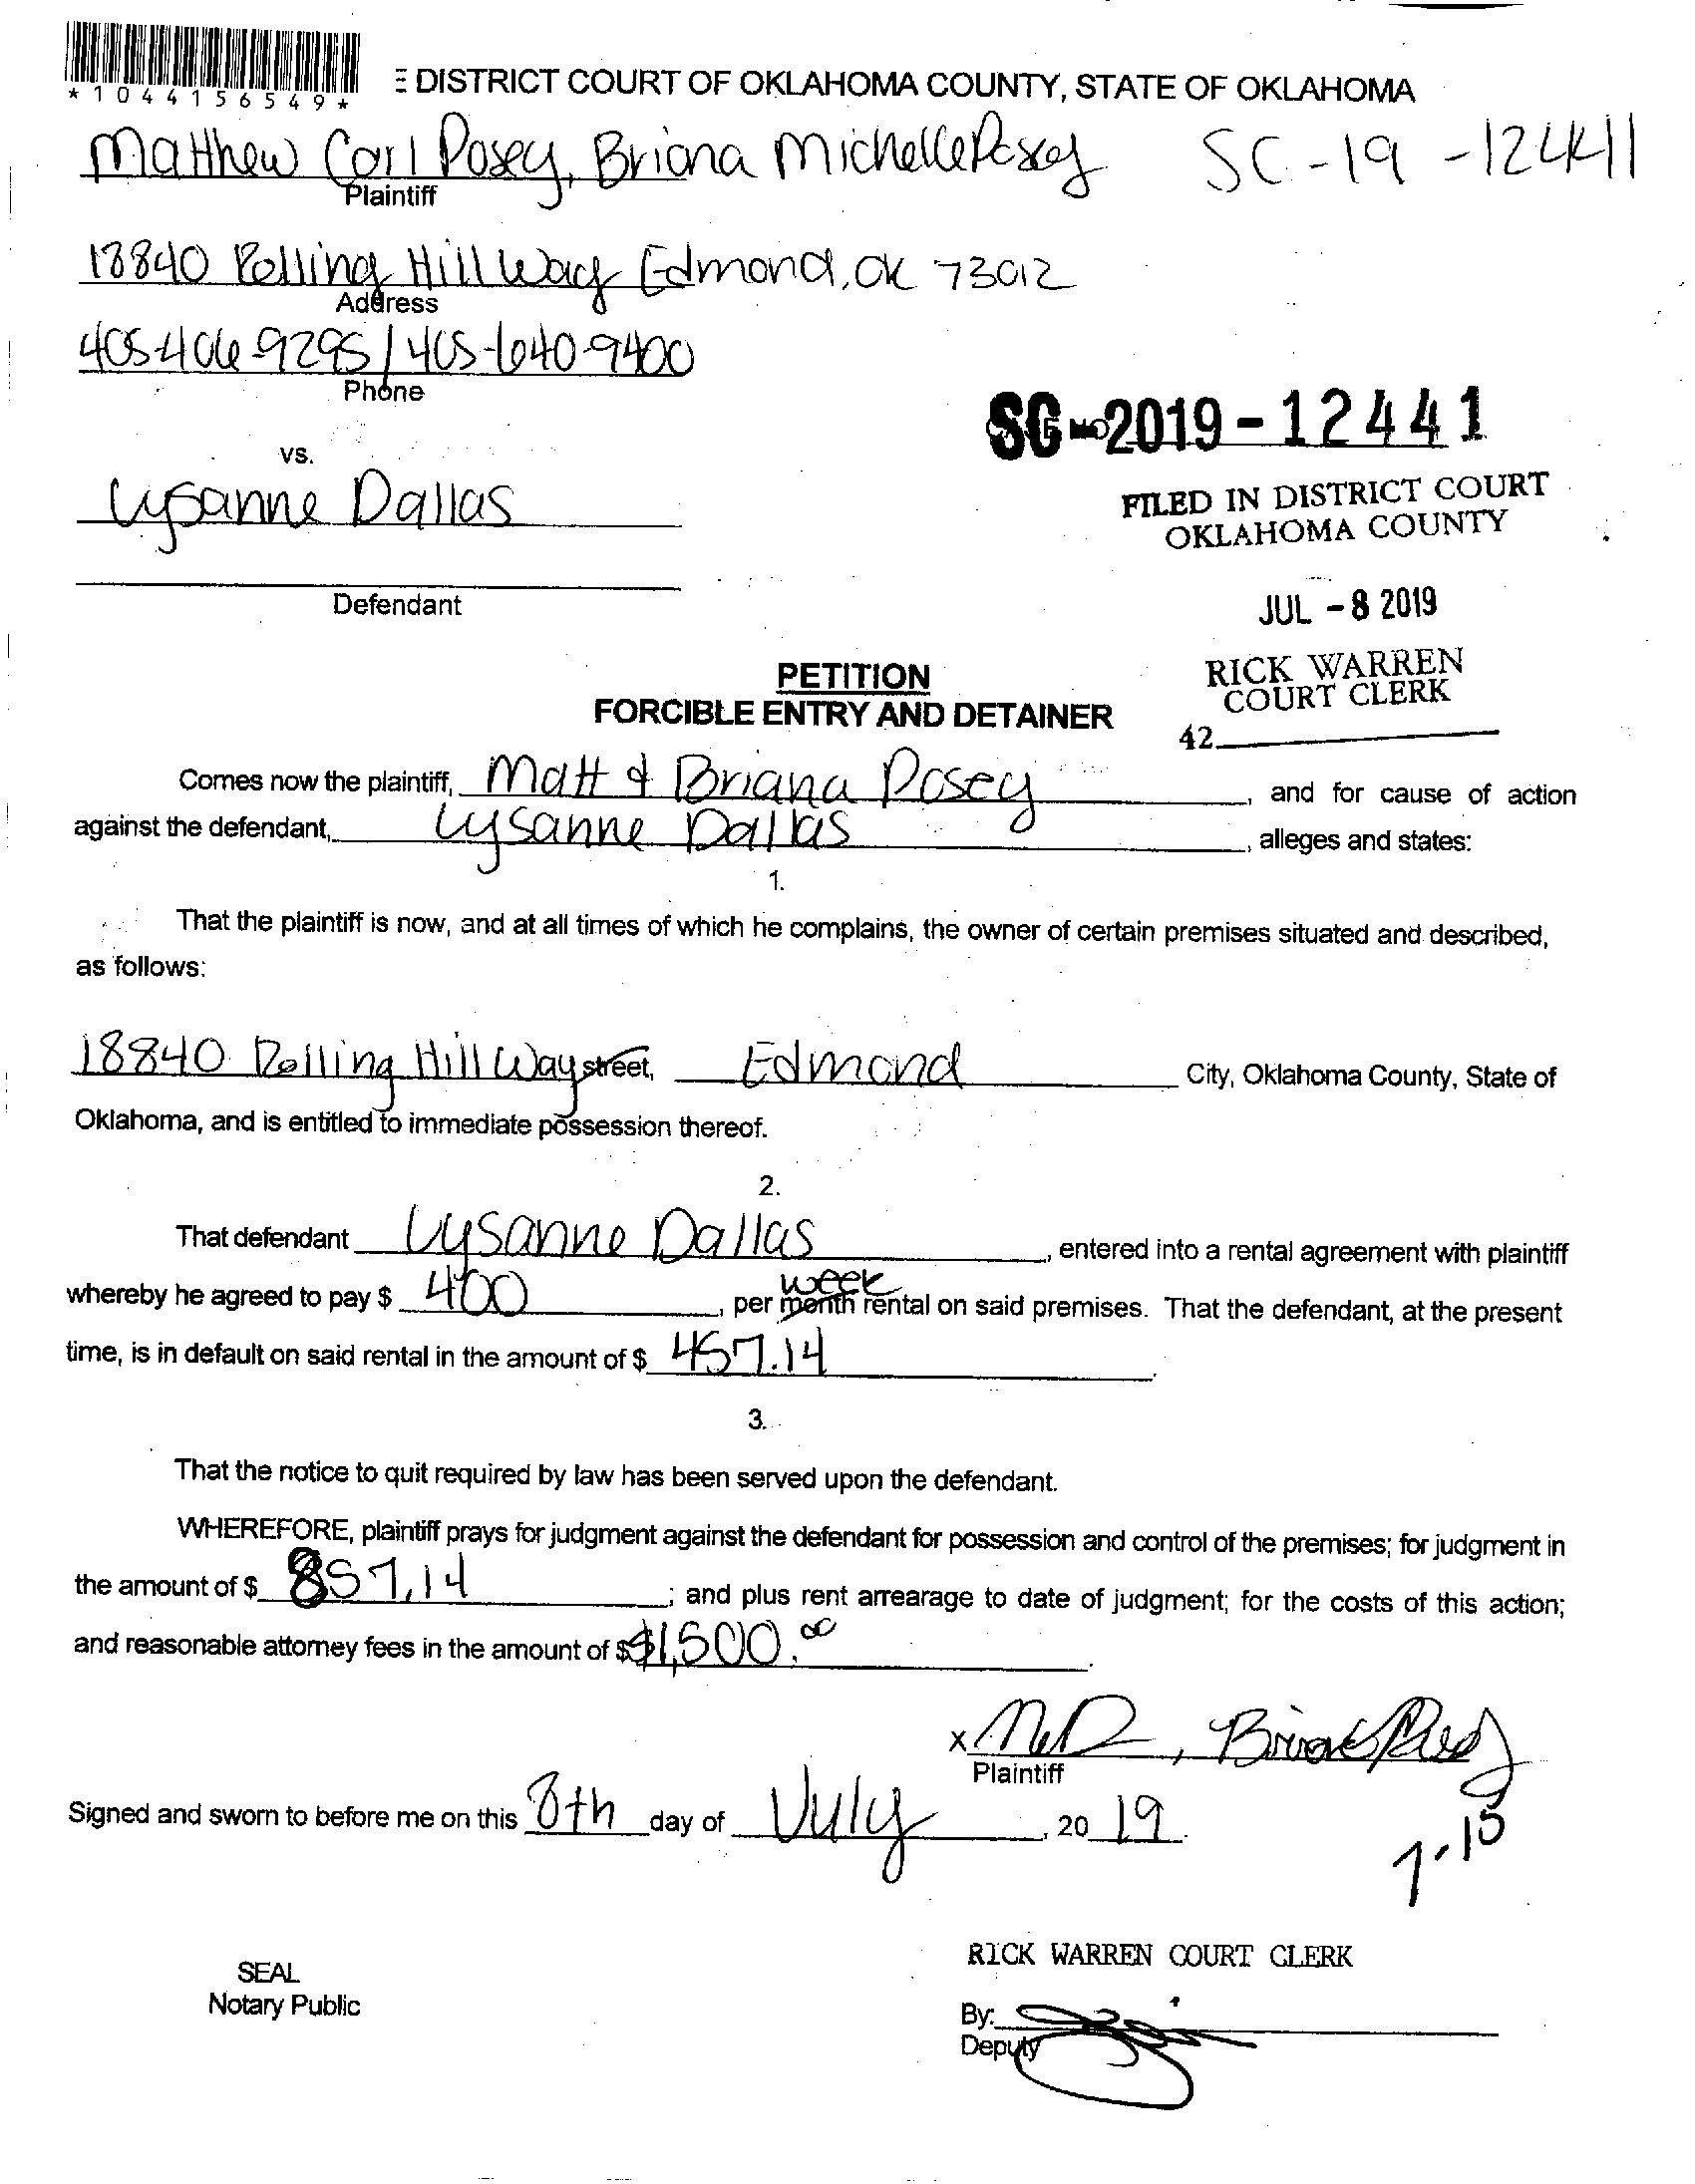 *1044156549*
E DISTRICT COURT OF OKLAHOMA COUNTY, STATE OF OKLAHOMA
Matthew Carl Posey, Briana Michelle Posey SC-19-12441
Plaintiff
18840 Rolling Hill Way Edmond, OK 73012
Address
405-406-9295 / 405-640-9400
Phone
SC-2019-12441
vs.
Lysanne Dallas
FILED IN DISTRICT COURT
OKLAHOMA COUNTY
Defendant
JUL -8 2019
PETITION
FORCIBLE ENTRY AND DETAINER
RICK WARREN
COURT CLERK
42
Comes now the plaintiff, Matt & Briana Posey, and for cause of action
against the defendant, Lysanne Dallas, alleges and states:
1.
That the plaintiff is now, and at all times of which he complains, the owner of certain premises situated and described,
as follows:
18840 Rolling Hill Way street, Edmond City, Oklahoma County, State of
Oklahoma, and is entitled to immediate possession thereof.
2.
That defendant Lysanne Dallas, entered into a rental agreement with plaintiff
week
whereby he agreed to pay $ 400, per month rental on said premises. That the defendant, at the present
time, is in default on said rental in the amount of $ 457.14.
3.
That the notice to quit required by law has been served upon the defendant.
WHEREFORE, plaintiff prays for judgment against the defendant for possession and control of the premises; for judgment in
the amount of $ 857.14; and plus rent arrearage to date of judgment; for the costs of this action;
and reasonable attorney fees in the amount of $ $1,500.00.
x
Plaintiff
Signed and sworn to before me on this 8th day of July, 2019.
7-15
RICK WARREN COURT CLERK
SEAL
Notary Public
By:
Deputy